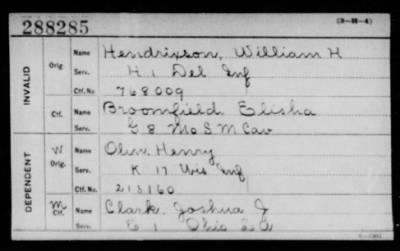 288285 (3-M-4)
INVALID
Orig. Name Hendrixson, William H
Serv. H 1 Del Inf
Ctf. No. 768009
Ctf. Name Broomfield Elisha
Serv. G 8 Mo S M Cav
DEPENDENT
W Orig. Name Oliv. Henry
Serv. K 17 Wis Inf
Ctf. No. 215160
Ctf. Name Clark, Joshua J
Serv. E 1 Ohio